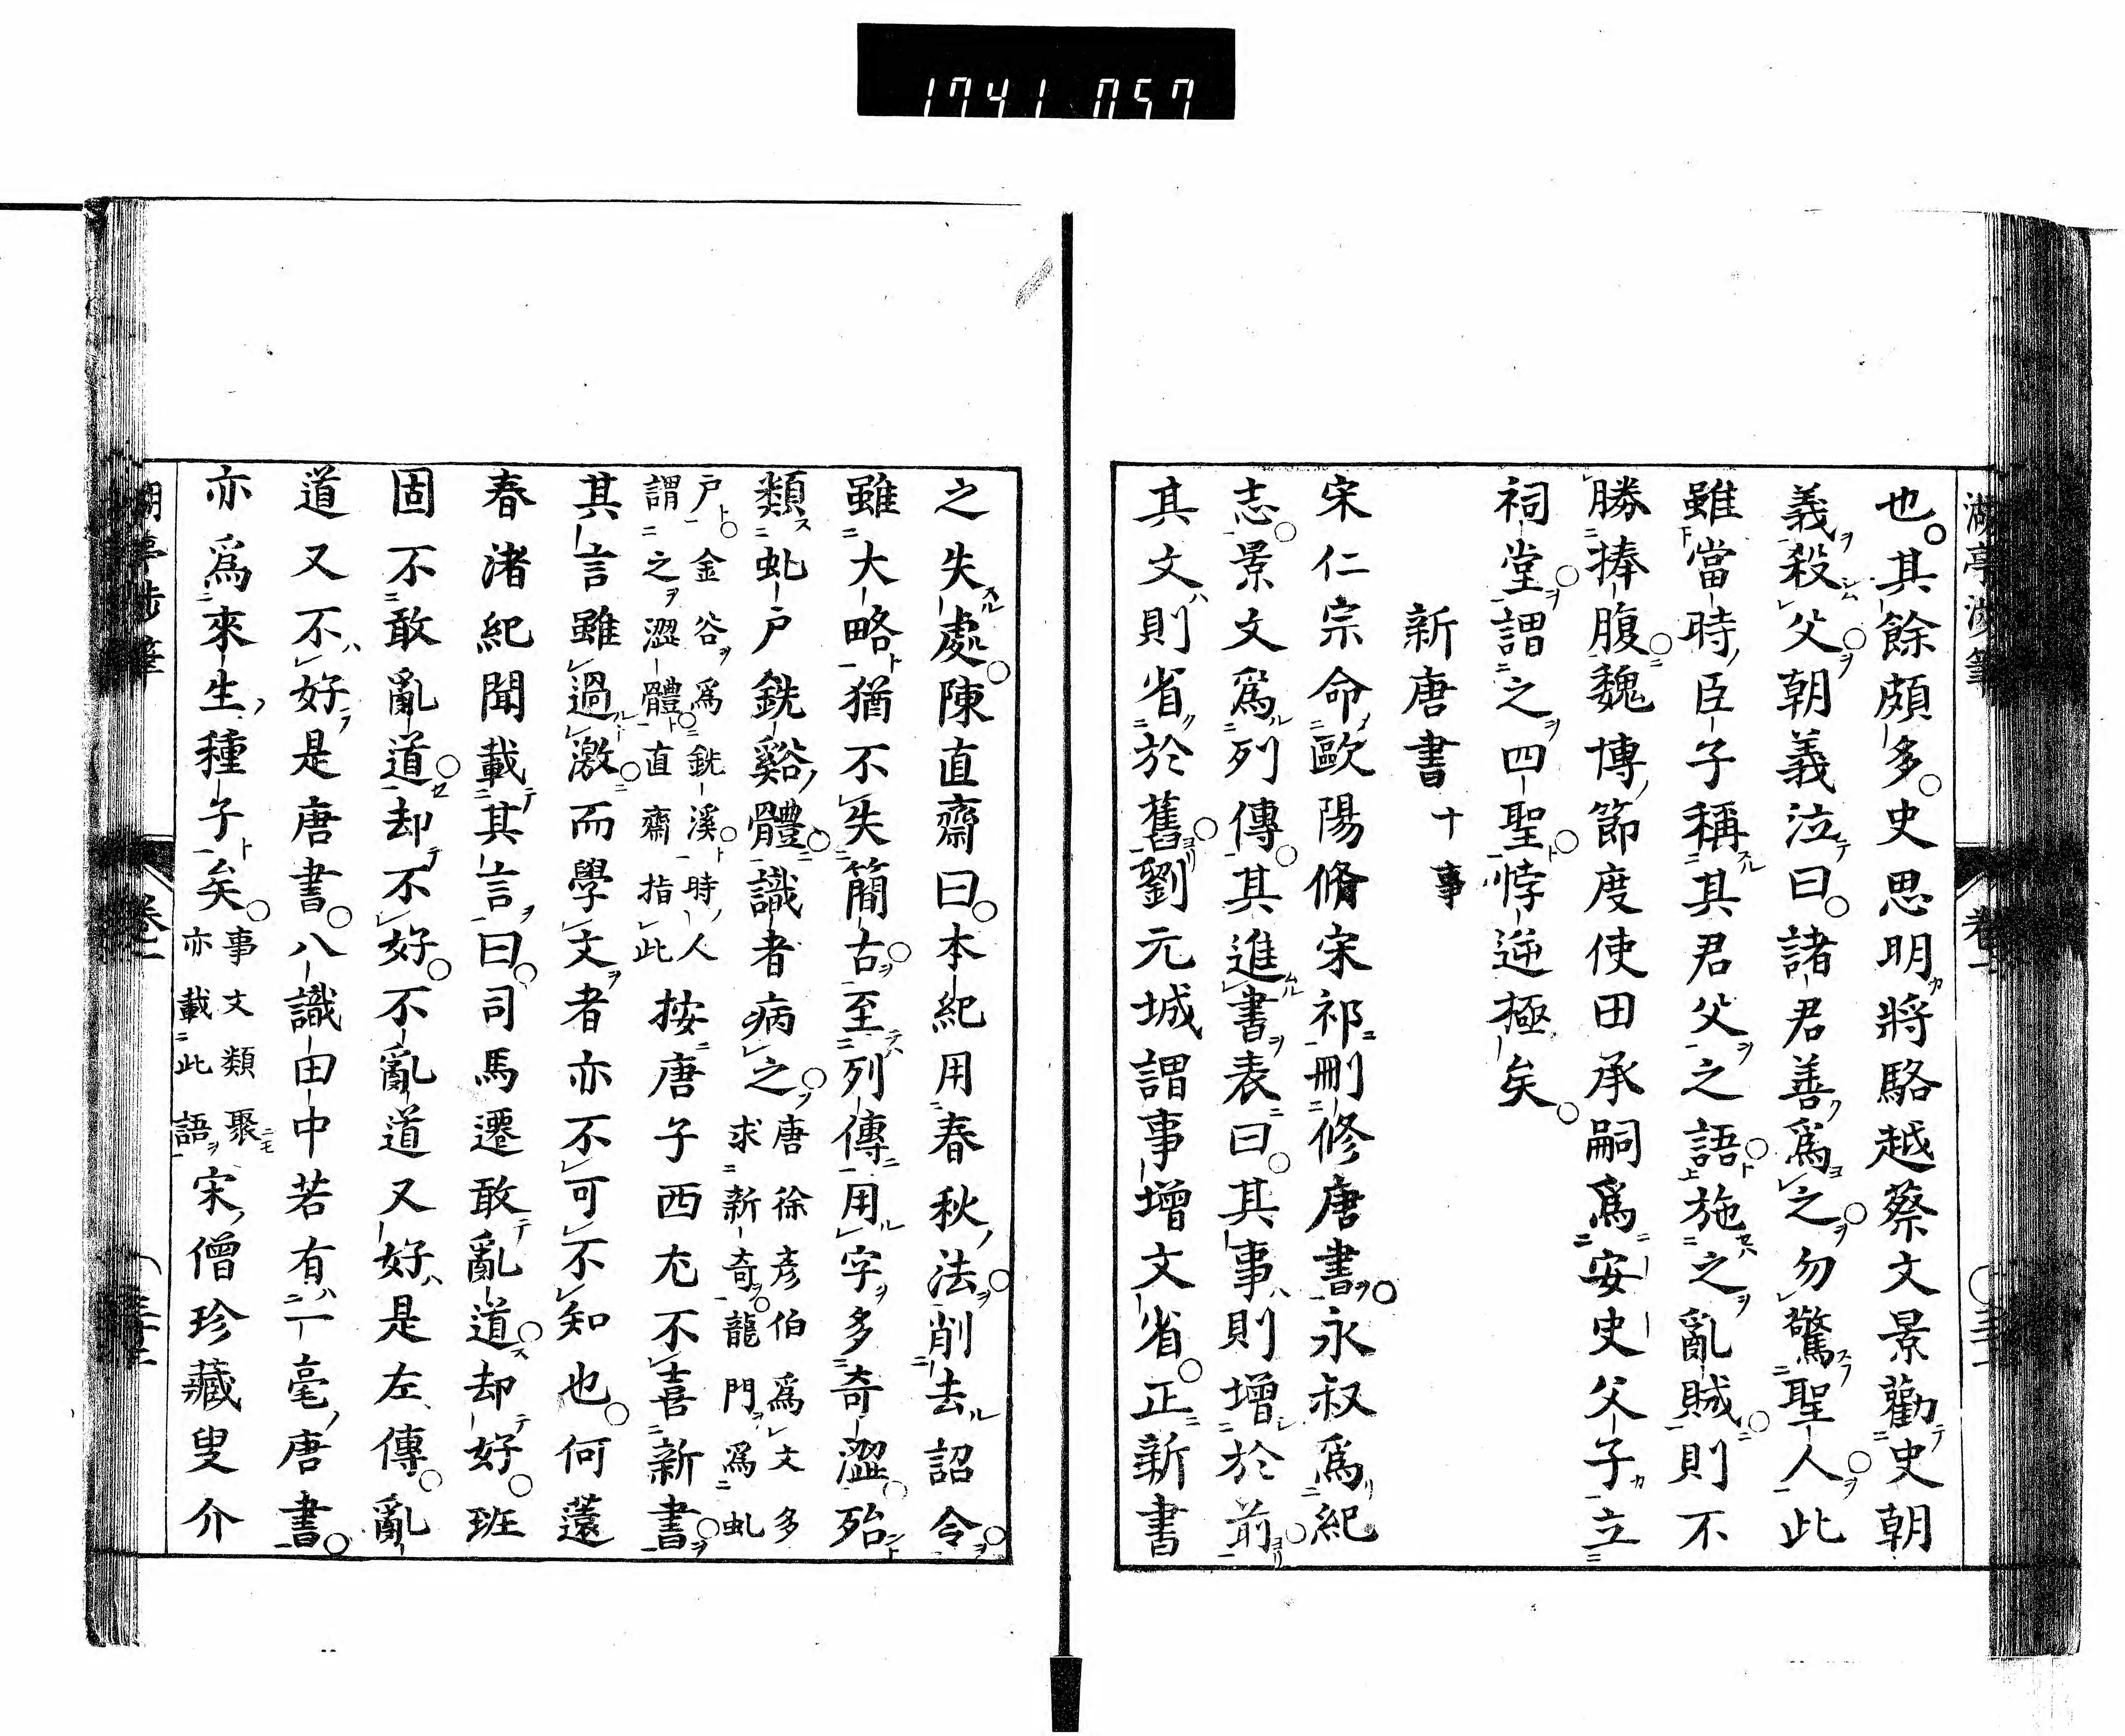 1741 057
湖亭渉筆
卷一
也其餘頗多史思明將駱越蔡文景勸史朝
義殺父朝義泣曰諸君善爲之勿驚聖人此
雖當時臣子稱其君父之語施之亂賊則不
勝捧腹魏博節度使田承嗣爲安史父子立
祠堂謂之四聖悖逆極矣
新唐書十事
宋仁宗命歐陽脩宋祁刪修唐書永叔爲紀
志景文爲列傳其進書表曰其事則增於前
其文則省於舊劉元城謂事增文省正新書
之失處陳直齋曰本紀用春秋法削去詔令
雖大略猶不失簡古至列傳用字多奇澀殆
類虬戶銑谿體識者病之唐徐彦伯爲文多
求新奇龍門爲虬
戶金谷爲銑溪時人
謂之澀體直齋指此按唐子西尤不喜新書
其言雖過激而學文者亦不可不知也何薳
春渚紀聞載其言曰司馬遷敢亂道却好班
固不敢亂道却不好不亂道又好是左傳亂
道又不好是唐書八識田中若有一毫唐書
亦爲來生種子矣事文類聚
亦載此語宋僧珍藏叟介
湖亭渉筆
卷一